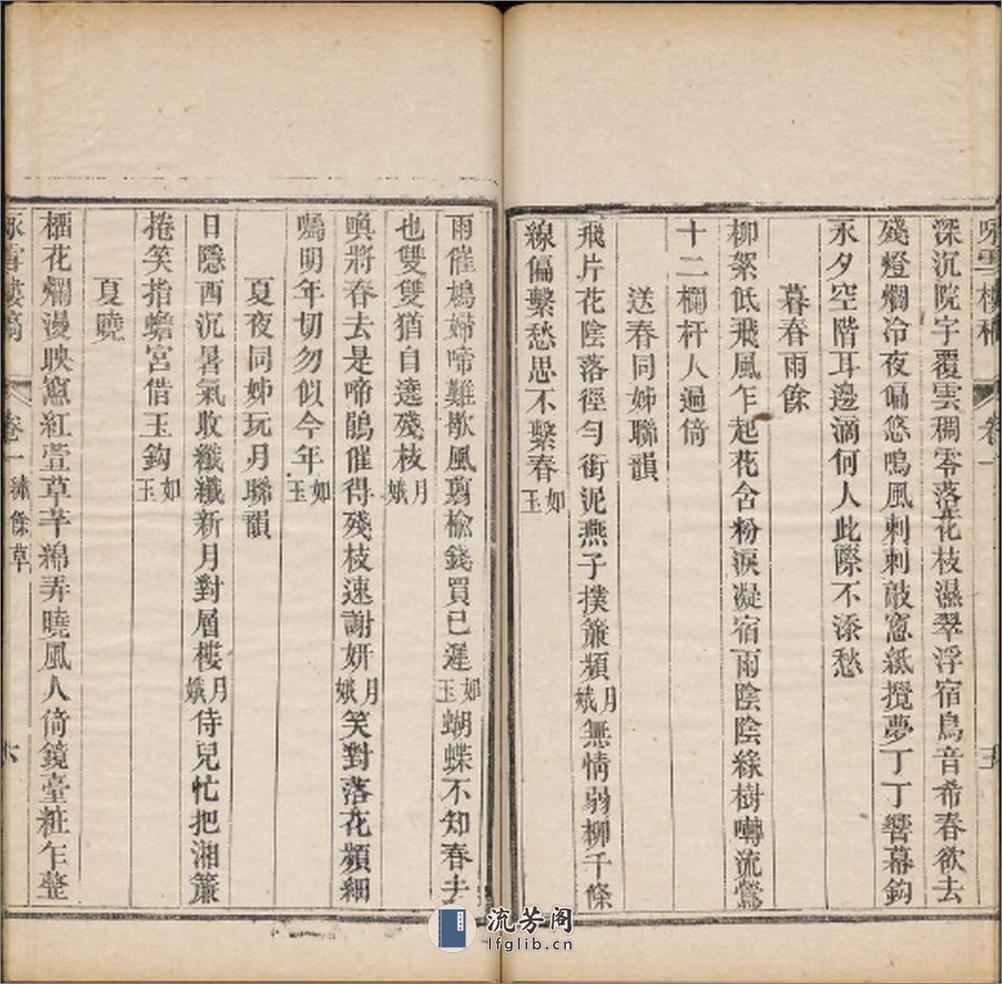 深沉院宇覆雲稠零落花枝濕翠浮宿鳥音希春欲去
殘燈爛冷夜偏悠鳴風刺刺敲窻紙攪夢丁丁響幕鈎
永夕空階耳邊滴何人此際不添愁
暮春雨餘
柳絮低飛風乍起花含粉淚凝宿雨陰陰綠樹囀流鶯
十二欄杆人遍倚
送春同姊聯韻
飛片花陰落徑勻銜泥燕子撲簾頻月娥無情弱柳千條
線偏繫愁思不繫春如玉
雨催鳩婦啼難歇風剪榆錢買已遲如玉蝴蝶不知春去
也雙雙猶自遶殘枝月娥
喚將春去是啼鵑催得殘枝速謝妍月娥笑對落花頻細
囑明年切勿似今年如玉
夏夜同姊玩月聯韻
日隱西沉暑氣收纖纖新月對層樓月娥侍兒忙把湘簾
捲笑指蟾宮借玉鈎如玉
夏曉
榴花爛漫映窻紅萱草芊綿弄曉風人倚鏡臺粧乍整
雪樓稿 卷一 餘草 六
流芳阁
lfglib.cn